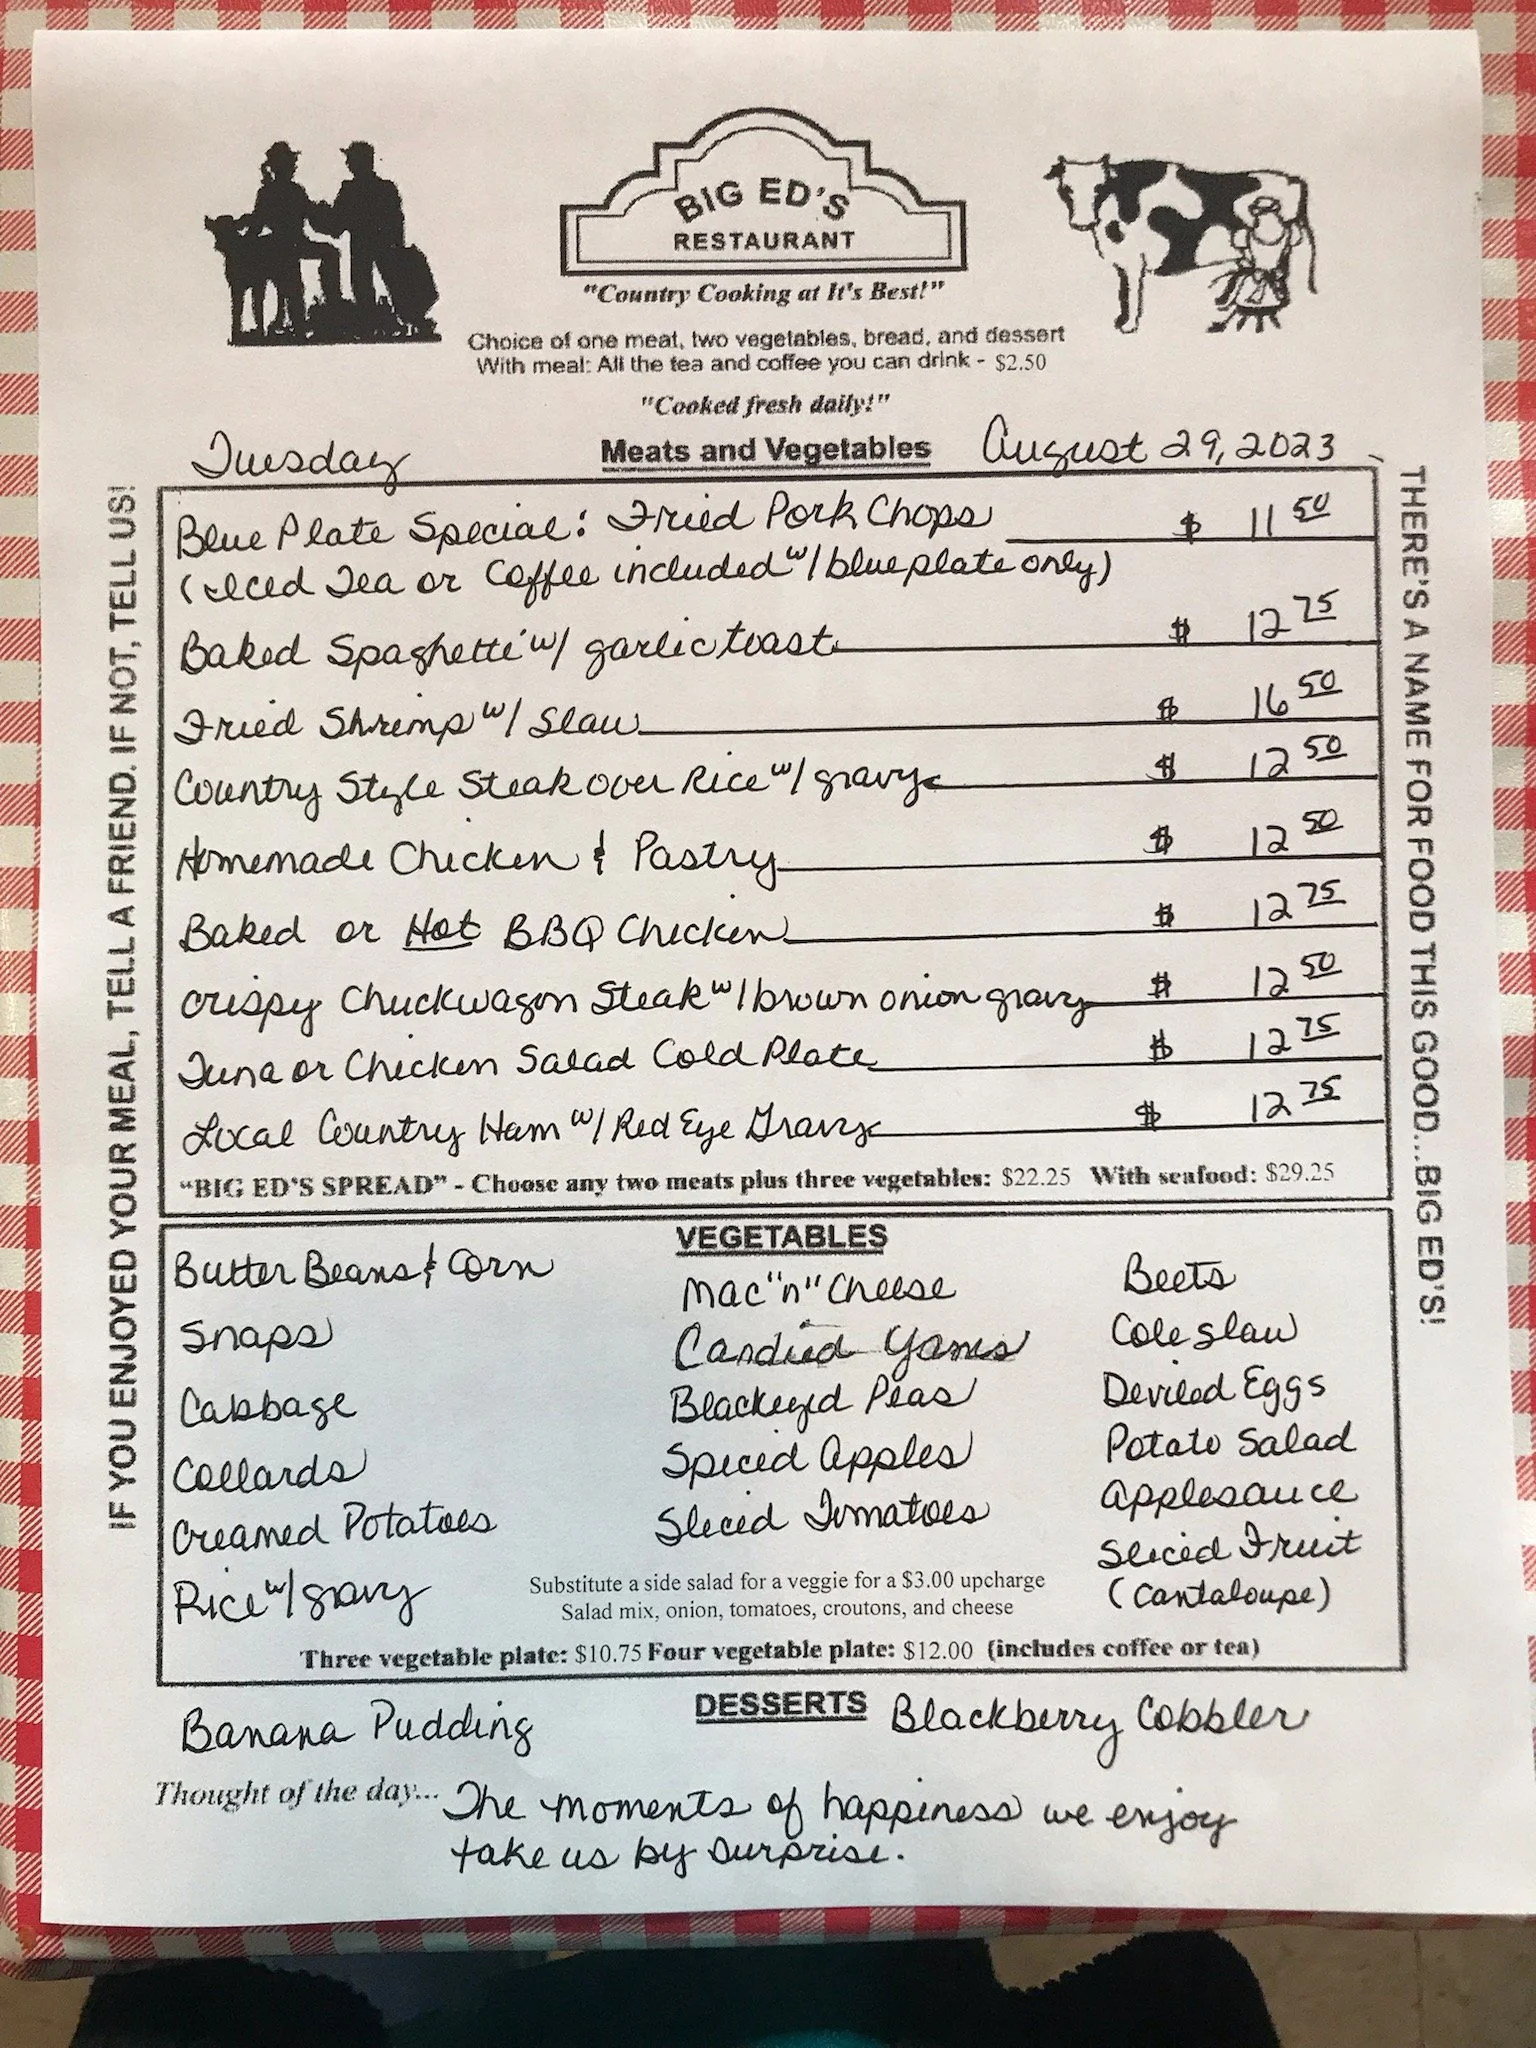 BIG ED'S
RESTAURANT
"Country Cooking at It's Best!"
Choice of one meat, two vegetables, bread, and dessert
With meal: All the tea and coffee you can drink - $2.50
"Cooked fresh daily!"
Tuesday Meats and Vegetables August 29, 2023
Blue Plate Special: Fried Pork Chops $ 11 50
(Iced Tea or Coffee included w/ blue plate only)
Baked Spaghetti w/ garlic toast $ 12 75
Fried Shrimp w/ Slaw $ 16 50
Country Style Steak over Rice w/ gravy $ 12 50
Homemade Chicken & Pastry $ 12 50
Baked or Hot BBQ Chicken $ 12 75
Crispy Chuckwagon Steak w/ brown onion gravy $ 12 50
Tuna or Chicken Salad Cold Plate $ 12 75
Local Country Ham w/ Red Eye Gravy $ 12 75
"BIG ED'S SPREAD" - Choose any two meats plus three vegetables: $22.25 With seafood: $29.25
VEGETABLES
Butter Beans & Corn
Snaps
Cabbage
Collards
Creamed Potatoes
Rice w/ gravy
Mac "n" Cheese
Candied Yams
Blackeyed Peas
Spiced Apples
Sliced Tomatoes
Beets
Cole slaw
Deviled Eggs
Potato Salad
Applesauce
Sliced Fruit
(Cantaloupe)
Substitute a side salad for a veggie for a $3.00 upcharge
Salad mix, onion, tomatoes, croutons, and cheese
Three vegetable plate: $10.75 Four vegetable plate: $12.00 (includes coffee or tea)
DESSERTS
Banana Pudding
Blackberry Cobbler
Thought of the day... The moments of happiness we enjoy
take us by surprise.
IF YOU ENJOYED YOUR MEAL, TELL A FRIEND. IF NOT, TELL US!
THERE'S A NAME FOR FOOD THIS GOOD...BIG ED'S!